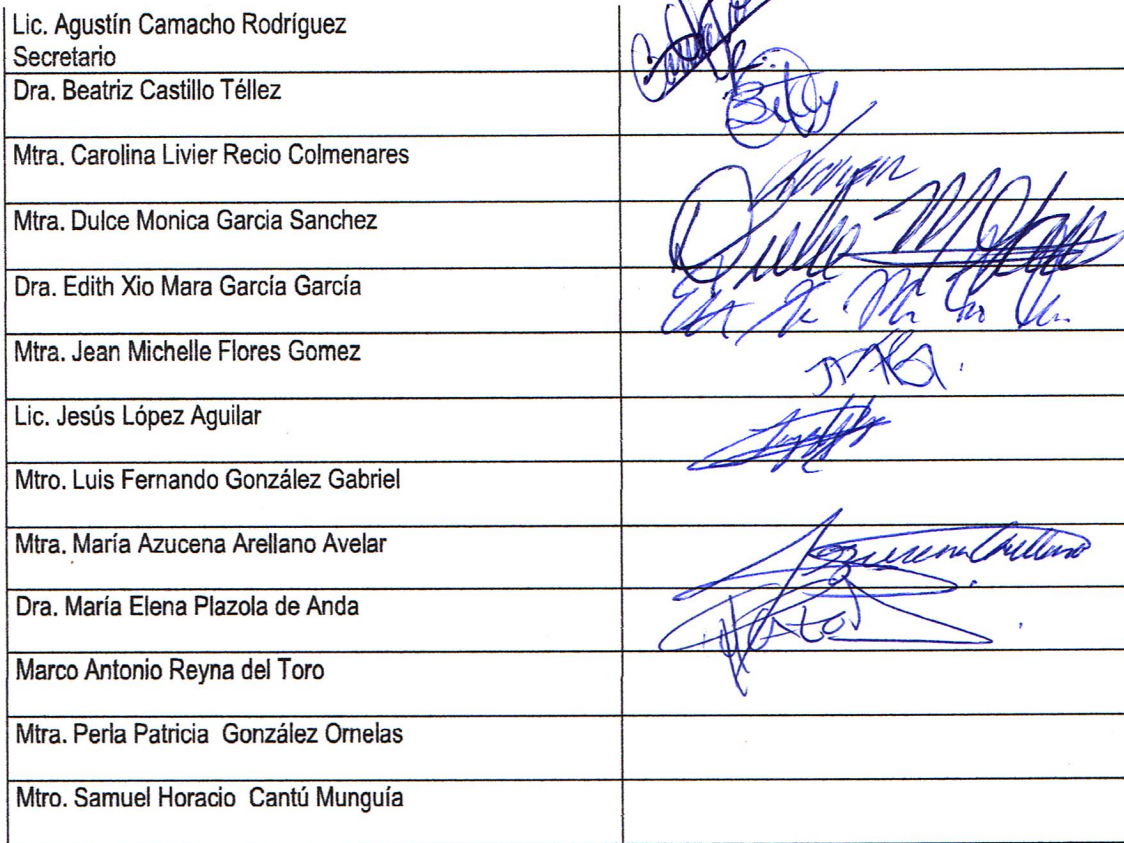 Lic. Agustín Camacho Rodríguez
Secretario
Dra. Beatriz Castillo Téllez
Betty
Mtra. Carolina Livier Recio Colmenares
Mtra. Dulce Monica Garcia Sanchez
Dulce M
Dra. Edith Xio Mara García García
Mtra. Jean Michelle Flores Gomez
Lic. Jesús López Aguilar
Mtro. Luis Fernando González Gabriel
Mtra. María Azucena Arellano Avelar
Azucena Arellano
Dra. María Elena Plazola de Anda
Marco Antonio Reyna del Toro
Mtra. Perla Patricia González Ornelas
Mtro. Samuel Horacio Cantú Munguía